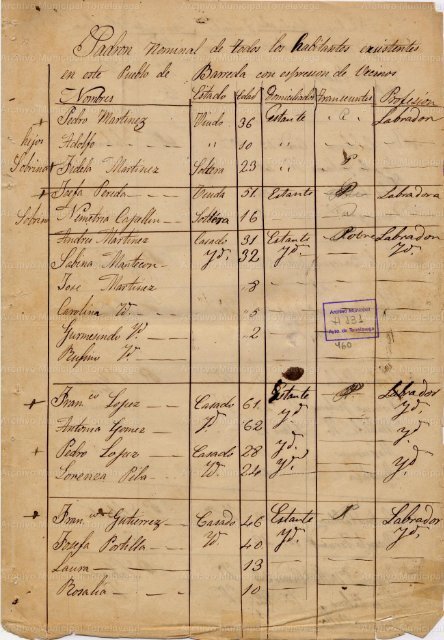 Padron Nominal de todos los habitantes existentes
en este Pueblo de Barreda con espresion de Vecinos
Nombres Estado Edad Domiciliados Transeuntes Profesion
+ Pedro Martinez Viudo 36 estante " Labrador
hijo Adolfo " 10 "
Sobrina + Fidela Martinez Soltera 23 "
+ Josefa Pereda Viuda 51 Estante Labradora
Sobrino Soltera 16
+ Andres Martinez Casado 31 Estante Pobre Labrador
Sabina Yd. 32 Yd. Yd.
Jose Martinez 8
Carolina Yd. 5
Gumersindo Yd. 2
Rufino Yd.
Archivo Municipal
H 231
Ayto. de Torrelavega
460
+ Franco Lopez Casado 61 Estante Labrador
Antonia Gomez Yd. 62 Yd. Yd.
+ Pedro Lopez Casado 28 Yd. Yd.
Lorenza Yd. 24 Yd. Yd.
+ Franco Gutierrez Casado 46 Estante Labrador
Josefa Portilla Yd. 40 Yd. Yd.
Laura 13
Rosalia 10
Archivo Municipal Torrelavega